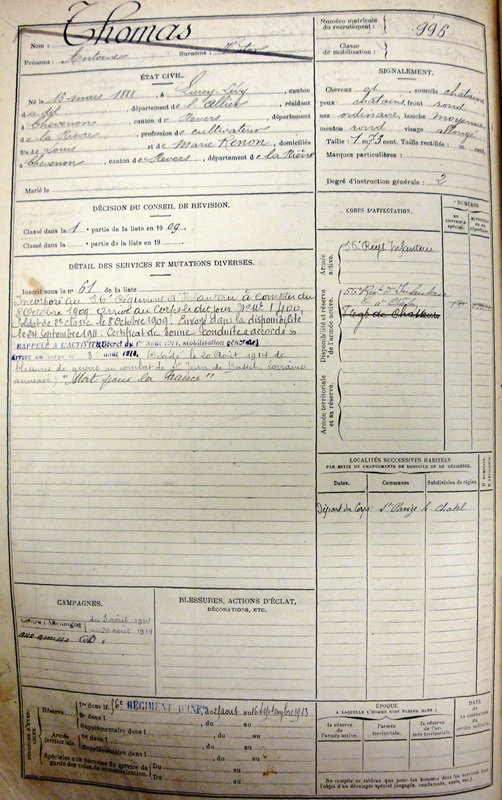 Thomas
Nom :
Prénoms : Antoine Surnoms : Victor
ÉTAT CIVIL.
Né le 16 mars 1888, à Lurcy Lévy, canton
du dit, département de l'Allier, résidant
à Chevenon, canton de Nevers, département
de la Nièvre, profession de cultivateur
fils de Louis et de Marie Renon, domiciliés
à Chevenon, canton de Nevers, département de la Nièvre
Marié le
DÉCISION DU CONSEIL DE REVISION.
Classé dans la 1e partie de la liste en 1909.
Classé dans la partie de la liste en 19
DÉTAIL DES SERVICES ET MUTATIONS DIVERSES.
Inscrit sous le n° 61 de la liste
Incorporé au 56e Régiment d'Infanterie à compter du
8 Octobre 1909. Arrivé au Corps le dit jour,
soldat de 2e classe le 8 octobre 1909. Envoyé dans la disponibilité
le 24 Septembre 1911. Certificat de bonne conduite « accordé »
RAPPELÉ A L'ACTIVITÉ (Décret du 1er Août 1914, mobilisation générale)
Arrivé au corps le 3 août 1914. Décédé le 20 Août 1914 de
blessures de guerre au combat de St Jean de Bassel, (Lorraine
annexée) "Mort pour la France"
CAMPAGNES.
Contre l'Allemagne du 3 août 1914
au 20 août 1914
aux armées
BLESSURES, ACTIONS D'ÉCLAT,
DÉCORATIONS, ETC.
Réserve
1re dans le 56e RÉGIMENT D'INFie, du 21 août au 16 septembre 1913
2e dans l , du au
Supplémentaire dans l , du au
Armée territoriale.
1re dans l , du au
Supplémentaire dans l , du au
Spéciales aux hommes du service de
garde des voies de communication.
Du au
Du au
Numéro matricule
du recrutement : 996
Classe
de mobilisation :
SIGNALEMENT.
Cheveux et sourcils châtains
yeux châtains, front rond
nez ordinaire, bouche moyenne
menton rond visage allongé
Taille : 1 m. 73 cent. Taille rectifiée : m. cent.
Marques particulières :
Degré d'instruction générale : 2
CORPS D'AFFECTATION.
NUMÉROS
Armée
active.
56e Régt Infanterie
Disponibilité et réserve
de l'armée active.
56e Régt d'Infanterie
Régt de Chasseurs
Armée territoriale
et sa réserve.
LOCALITÉS SUCCESSIVES HABITÉES
PAR SUITE DE CHANGEMENTS DE DOMICILE OU DE RÉSIDENCE.
Dates. Communes. Subdivision de région.
Départ du Corps St Parize le Châtel
ÉPOQUE
À LAQUELLE L'HOMME DOIT PASSER DANS :
la réserve
de l'armée active.
l'armée
territoriale.
la réserve
de l'ar-
mée territoriale.
DATE